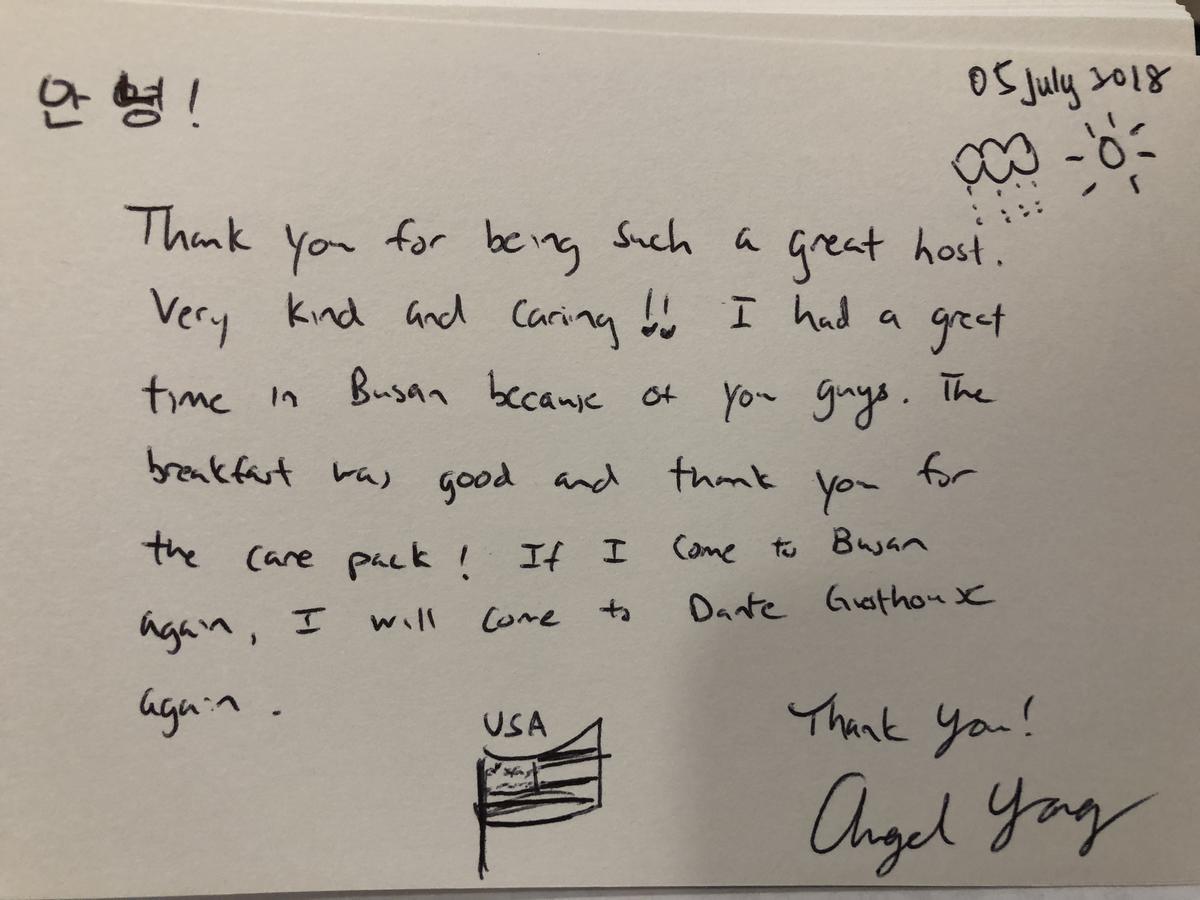 안녕!
05 July 2018
Thank you for being such a great host.
Very kind and caring!! I had a great
time in Busan because of you guys. The
breakfast was good and thank you for
the care pack! If I come to Busan
again, I will come to Dante Gusthouse
again.
USA
Thank you!
Angel Yang